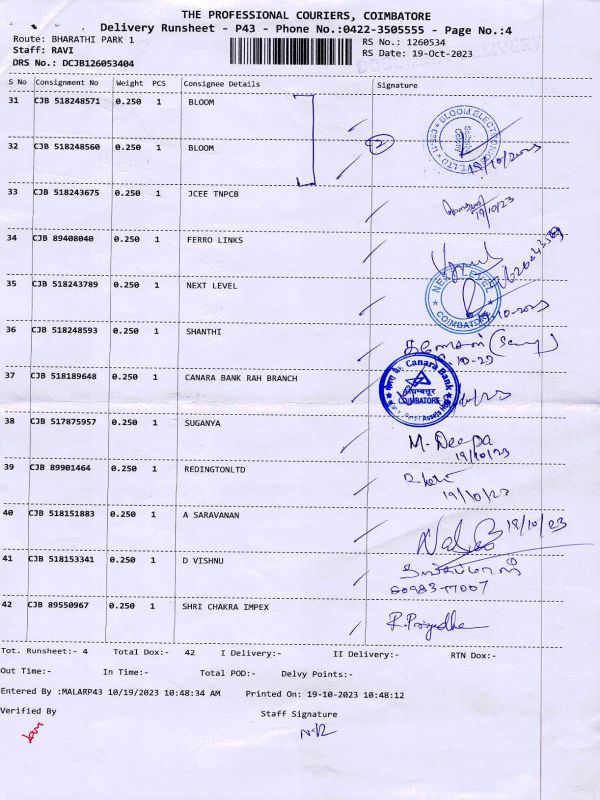 THE PROFESSIONAL COURIERS, COIMBATORE
Delivery Runsheet - P43 - Phone No.:0422-3505555 - Page No.:4
Route: BHARATHI PARK 1 RS No.: 1260534
Staff: RAVI RS Date: 19-Oct-2023
DRS No.: DCJB126053404
S No Consignment No Weight PCS Consignee Details Signature
31 CJB 518248571 0.250 1 BLOOM
32 CJB 518248560 0.250 1 BLOOM 2 19/10/2023
33 CJB 518243675 0.250 1 JCEE TNPCB 19/10/23
34 CJB 89408040 0.250 1 FERRO LINKS
35 CJB 518243789 0.250 1 NEXT LEVEL NEXT LEVEL COIMBATORE
36 CJB 518248593 0.250 1 SHANTHI
37 CJB 518189648 0.250 1 CANARA BANK RAH BRANCH Canara Bank COIMBATORE
38 CJB 517875957 0.250 1 SUGANYA M. Deepa
19/10/23
39 CJB 89901464 0.250 1 REDINGTONLTD
19/10/23
40 CJB 518151883 0.250 1 A SARAVANAN 19/10/23
41 CJB 518153341 0.250 1 D VISHNU
42 CJB 89550967 0.250 1 SHRI CHAKRA IMPEX
Tot. Runsheet:- 4 Total Dox:- 42 I Delivery:- II Delivery:- RTN Dox:-
Out Time:- In Time:- Total POD:- Delvy Points:-
Entered By :MALARP43 10/19/2023 10:48:34 AM Printed On: 19-10-2023 10:48:12
Verified By Staff Signature